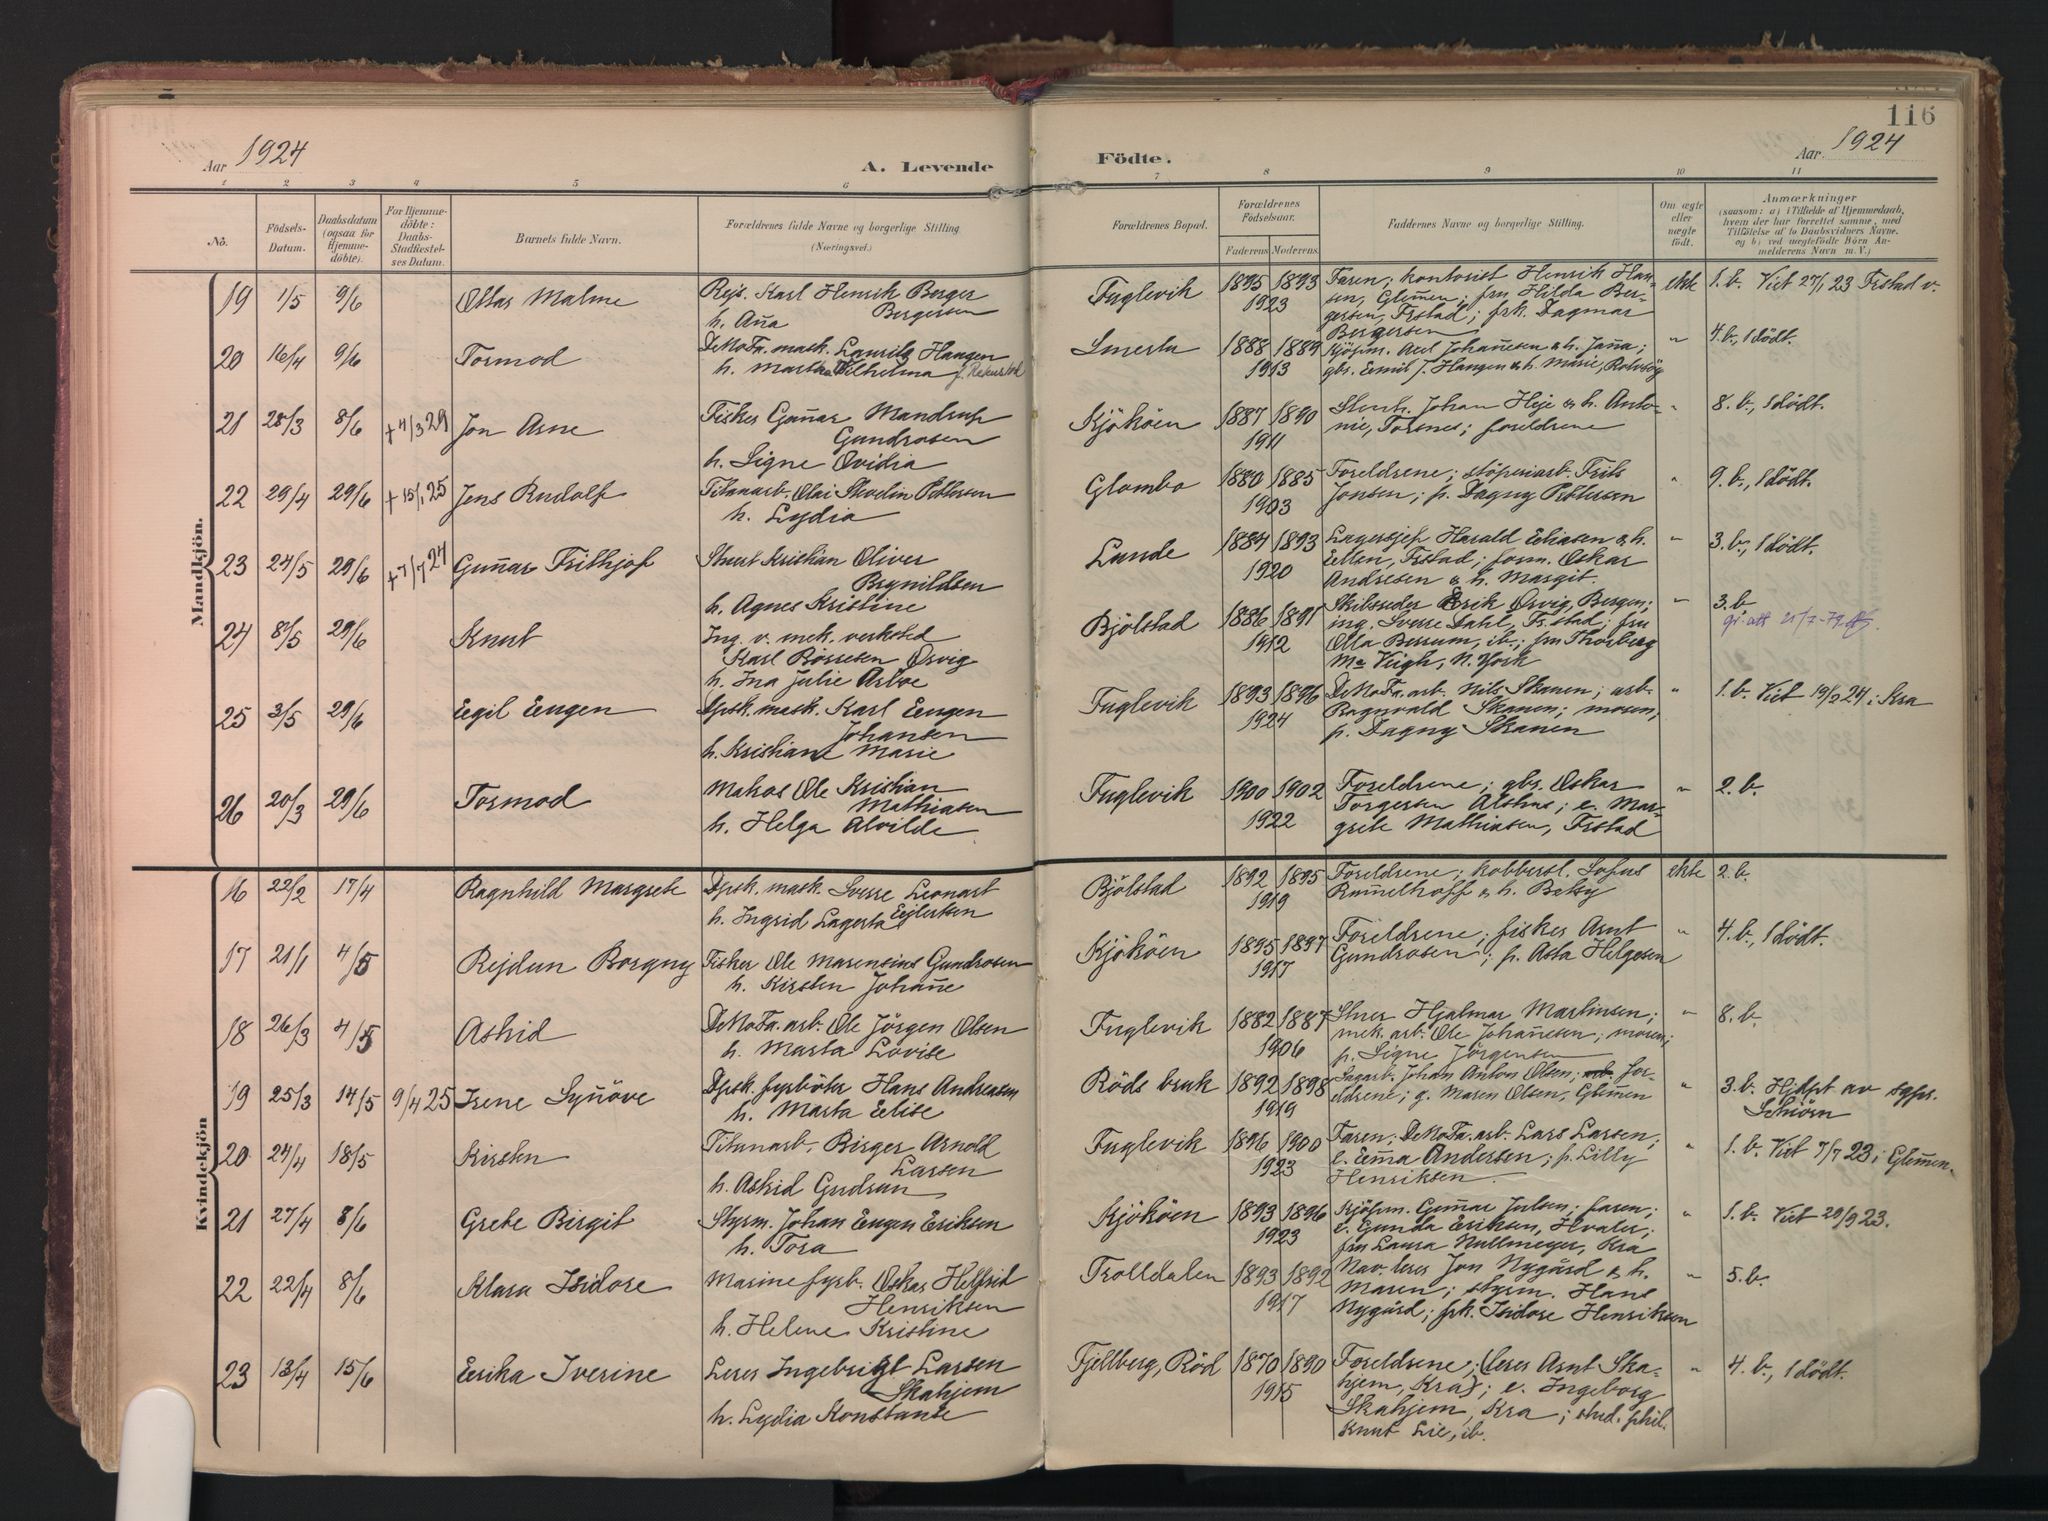 116
Aar 1924
A. Levende
Födte.
Aar 1924
1 2 3 4 5 6 7 8 9 10 11
No.
Födsels-Datum.
Daabsdatum (ogsaa for Hjemmedöbte).
For Hjemmedöbte: Daabs-Stadfæstelses Datum.
Barnets fulde Navn.
Forældrenes fulde Navne og borgerlige Stilling (Næringsvei.)
Forældrenes Bopæl.
Forældrenes Födselsaar.
Faderens Moderens
Faddernes Navne og borgerlige Stilling.
Om ægte eller uægte födt.
Anmærkninger
(saasom: a) i Tilfælde af Hjemmedaab,
hvem der har forrettet samme, med
Tilföielse af to Daabsvidners Navne.
og b) ved uægtefödte Börn Anmelderens Navn m. V.)
Mandkjön.
19 1/5 9/6 Ottar Malme Rejs. Karl Henrik Berger Bergersen
h. Anna
Fuglevik 1895 1893 1923
Faren; kontorist Henrik Hansen, Glemmen; fru Hilda Bergersen, Frstad; frk. Dagmar Bergersen
ekte 1.b. Viet 27/1 23 Frstad v.
20 16/4 9/6 Tormod DeNoFa. mask. Lauritz Haugen
h. Martha Wilhelmina
Smerta 1888 1889 1913
Kjöpm. Axel Johannesen & h. Janna;
gbr. Emil J. Haugen & h. Marie, Rolvsöy
" 4.b., 1 dödt.
21 28/3 8/6 +4/3 29 Jon Arne Fisker Gunnar Mandrup Gundrosen
h. Signe Ovidia
Kjököen 1887 1890 1911
Stenh. Johan Heje & h. Antonie, Torsnes; foreldrene
" 8.b., 1 dödt.
22 29/4 29/6 +15/1 25 Jens Rudolf Titanarb. Olai Severin Pettersen
h. Lydia
Glombo 1880 1885 1903
Foreldrene; stöperiarb. Frits Jonsen; p. Dagny Pettersen
" 9.b., 1 dödt.
23 24/5 29/6 +7/7 24 Gunnar Frithjof Stuert Kristian Oliver Brynildsen
h. Agnes Kristine
Lunde 1884 1893 1920
Lagersjef Harald Eliasen & h. Ellen, Frstad; form. Oskar Andresen & h. Margit.
" 3.b., 1 dödt.
24 8/5 29/6 Knut Ing. v. mek. verksted
Karl Börresen Örvig
h. Ina Julie
Bjölstad 1886 1891 1912
Skibsreder Erik Örvig, Bergen;
ing. Sverre Dahl, Fr.stad; fru
Olla Berrum, ib.; fru Thorberg
Mc Veigh, N. York
" 3.b.
25 3/5 29/6 Egil Eugen Dpsk. mask. Karl Eugen Johansen
h. Kristiane Marie
Fuglevik 1893 1896 1924
DeNoFa. arb. Nils Skauen; arb. Ragnvald Skauen; moren; p. Dagny Skauen
" 1.b. Viet 19/2 24 i Kra
26 20/3 29/6 Tormod Matros Ole Kristian Mathiasen
h. Helga Alvilde
Fuglevik 1900 1902 1922
Foreldrene; gbr. Oskar Torgersen Alshus; e. Margrete Mathiasen, Frstad
" 2.b.
Kvindekjön
16 22/2 17/4 Ragnhild Margrete Dpsk. mask. Sverre Leonart Eilertsen
h. Ingrid Lagerta
Bjölstad 1892 1895 1919
Foreldrene; kobbersl. Sofus Rummelhoff & h. Betzy
ekte 2.b.
17 21/1 4/5 Rejdun Borgny Fisker Ole Marensius Gundrosen
h. Kirsten Johanne
Kjököen 1895 1897 1917
Foreldrene; fisker Arnt Gundrosen; p. Asta Helgesen
" 4.b., 1 dödt.
18 26/3 4/5 Astrid DeNoFa. arb. Ole Jörgen Olsen
h. Marta Lovise
Fuglevik 1882 1887 1906
Hjalmar Martinsen;
mek. arb. Ole Johannesen; moren;
p. Signe Jörgensen
" 8.b.
19 25/3 14/5 9/4 25 Irene Synnöve Dpsk. fyrböter Hans Andreasen
h. Marta Elise
Röds bruk 1892 1898 1919
Sagarb. Johan Anton Olsen; foreldrene; g. Maren Olsen, Glemmen
" 3.b. Hjdpt av sgpr. Schiörn
20 24/4 18/5 Kirsten Titanarb. Birger Arnold Larsen
h. Astrid Gudrun
Fuglevik 1896 1900 1923
Faren; DeNoFa. arb. Lars Larsen;
e. Emma Andersen; p. Lilly Henriksen.
" 1.b. Viet 7/7 23 i Glemmen
21 27/4 8/6 Grete Birgit Styrm. Johan Eugen Eriksen
h. Tora
Kjököen 1893 1896 1923
Kjöpm. Gunnar Julsen; faren;
e. Gunda Eriksen, Hvaler;
fru Laura Nullmeyer, Kra
" 1.b. Viet 29/9 23.
22 22/4 8/6 Klara Isidore Marine fyrb. Oskar Helfrid Henriksen
h. Helene Kristine
Trolldalen 1893 1892 1917
Nav. lerer Jon Nygård & h. Maren; styrm. Hans Nygård; frk. Isidore Henriksen
" 5.b.
23 13/4 15/6 Erika Iverine Lerer Ingebrigt Larsen Skahjem
h. Lydia Konstanse
Fjellberg, Röd 1870 1890 1915
Foreldrene; (lerer Arnt Skahjem, Kra); e. Ingeborg Skahjem, Kra; stud. phil. Knut Lie, ib.
" 4.b., 1 dödt.